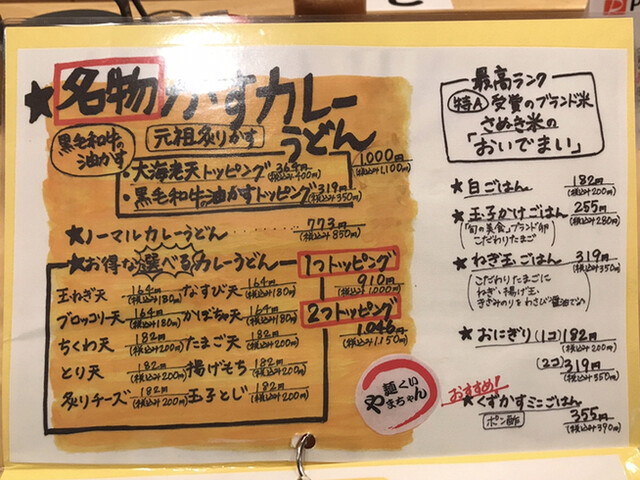 ★名物かすカレーうどん
黒毛和牛の油かす
元祖炙りかす
1,000円
(税込み1,100円)
・大海老天トッピング 364円
(税込み400円)
・黒毛和牛の油かすトッピング 319円
(税込み350円)
★ノーマルカレーうどん 773円
(税込み850円)
★お得な選べるカレーうどん
1つトッピング
910円
(税込み1,000円)
2つトッピング
1,046円
(税込み1,150円)
玉ねぎ天 164円 (税込み180円) なすび天 164円 (税込み180円)
ブロッコリー天 164円 (税込み180円) かぼちゃ天 164円 (税込み180円)
ちくわ天 182円 (税込み200円) たまご天 182円 (税込み200円)
とり天 182円 (税込み200円) 揚げもち 182円 (税込み200円)
炙りチーズ 182円 (税込み200円) 玉子とじ 182円 (税込み200円)
麺くい
やまちゃん
最高ランク
特A 受賞のブランド米
さぬき米の
「おいでまい」
★白ごはん 182円
(税込み200円)
★玉子かけごはん 255円
(税込み280円)
「旬の美食」ブランド卵
こだわりたまご
★ねぎ玉ごはん 319円
(税込み350円)
こだわりたまごに
ねぎ・揚げ玉・
きざみのりをわさび醤油で
★おにぎり(1コ)182円
(税込み200円)
(2コ)319円
(税込み350円)
おすすめ!
★くずかすミニごはん
ポン酢
355円
(税込み390円)